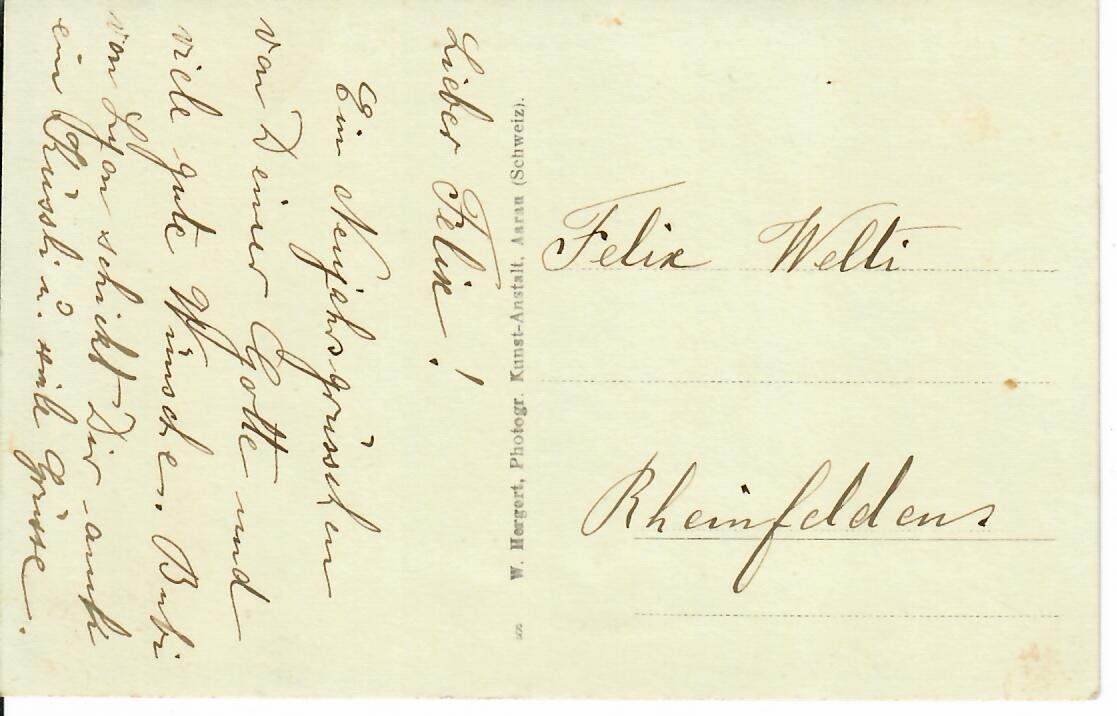 Lieber Felix!
Ein Neujahrsgrüsschen
von Deiner Gotte und
viele gute Wünsche. Bubi
von Lyon schickt Dir auch
ein Küssli u. viele Grüsse.
W. Hergert, Photogr. Kunst-Anstalt, Aarau (Schweiz).
Felix Welti
Rheinfelden